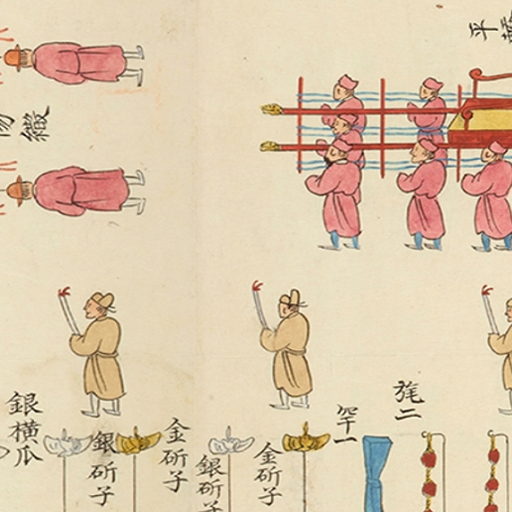 平
繖
旄二
罕一
金斫子
銀斫子
金斫子
銀斫子
銀橫瓜